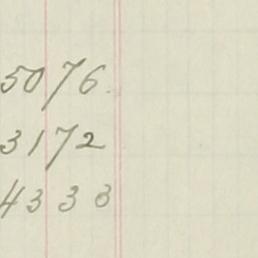 5076
3172
4333